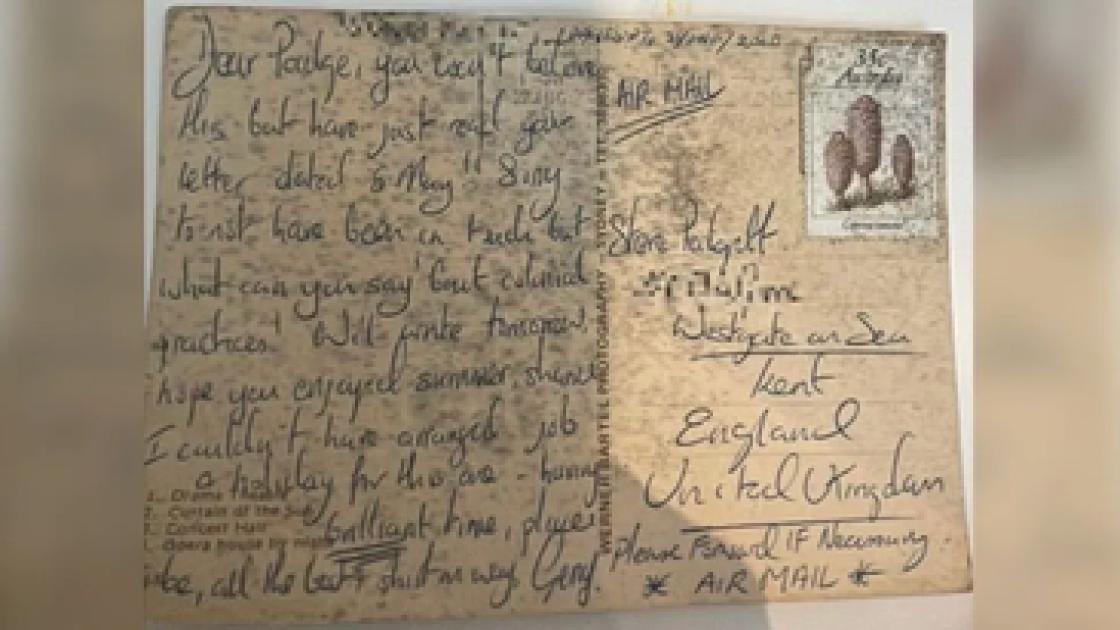 Dear Padge, you won't believe
this but have just read your
letter dated 6 May!! Sorry
to not have been in touch but
what can you say 'bout colonial
practices! Will write tomorrow,
hope you enjoyed summer, shame
I couldn't have arranged job
a holiday for this one - having
brilliant time,
all the best
1. Drama Theatre
2. Curtain of the Sun
3. Concert Hall
4. Opera house by night
WERNER BARTEL PHOTOGRAPHY SYDNEY
AIR MAIL
35c
Australia
Steve Padgett
Westgate on Sea
Kent
England
United Kingdom
Please Forward IF Necessary.
* AIR MAIL *